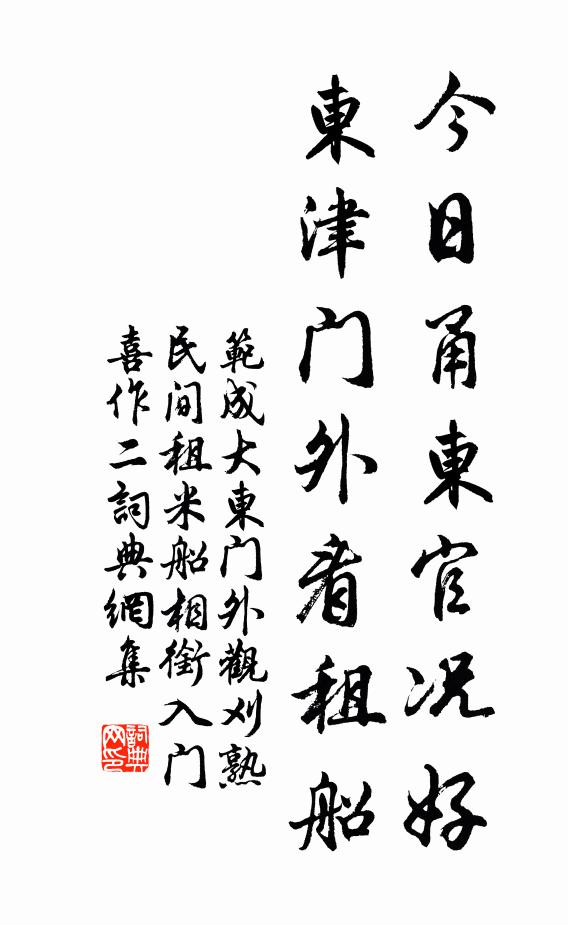 今日甬東官况好
東津门外看租船
範成大東门外觀刈熟
民间租米船相銜入门
喜作二詞典網集
詞典网印